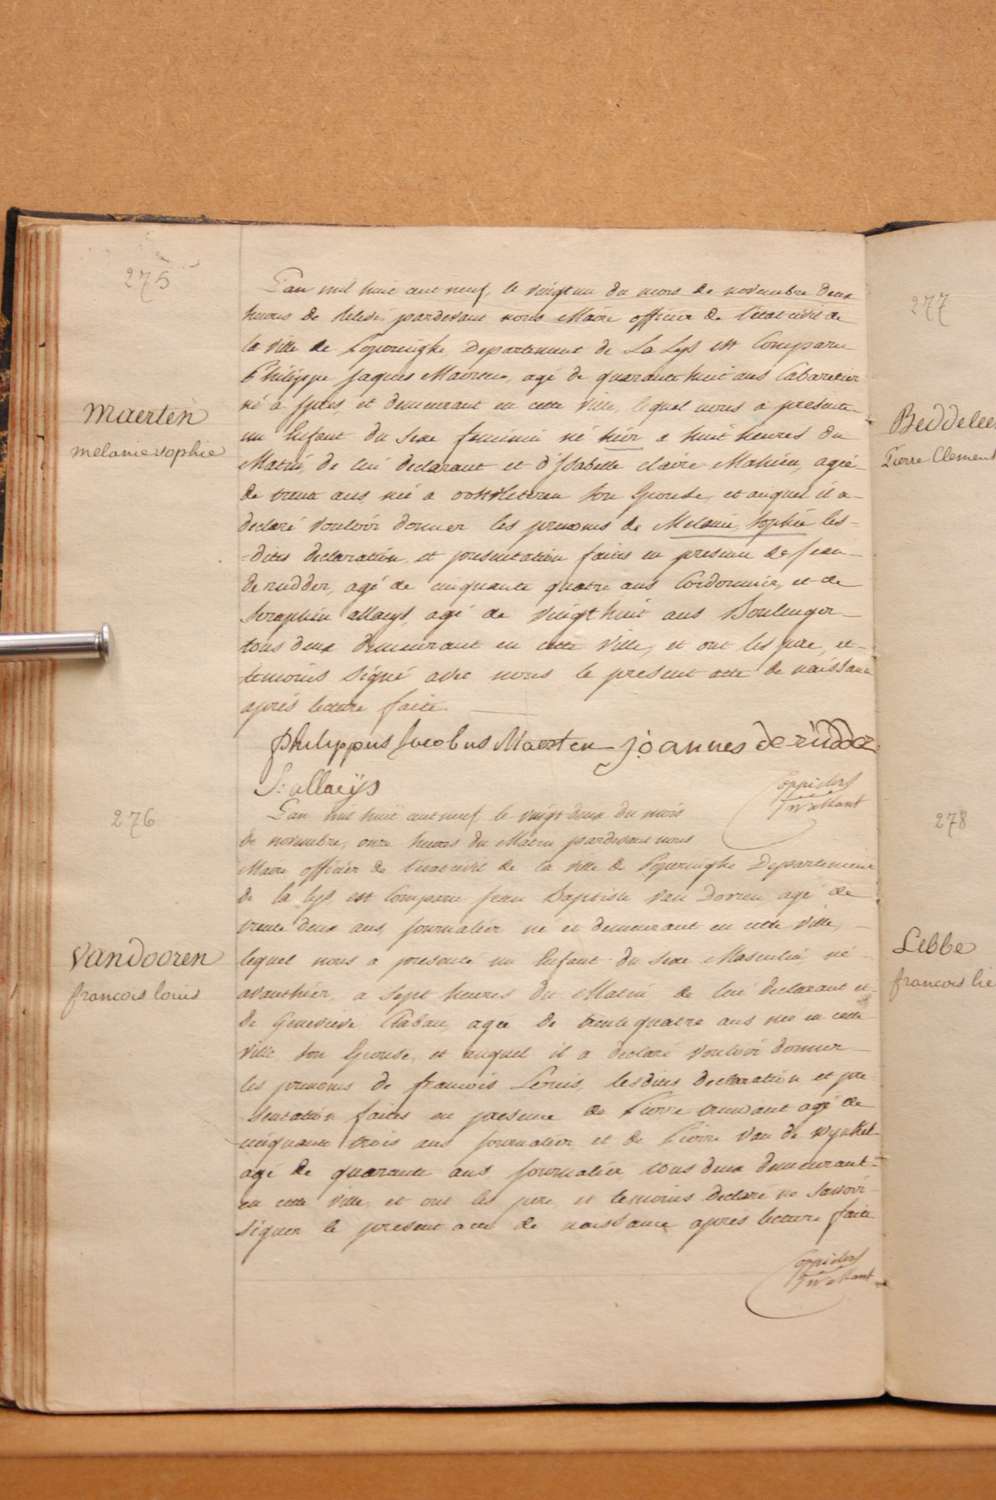 275
Maerten
melanie sophie
L'an mil huit cent neuf, le vingt un du mois de novembre deux
heures de relevée, pardevant nous Maire officier de l'état civil de
la ville de Poperinghe Departement de La Lys est Comparu
Philippe Jaques Maerten, agé de quarante huit ans Cabaretier
né à Ypres, et demeurant en cette ville, lequel nous a presenté
un Enfant du sexe feminin né hier a huit heures du
Matin, de lui declarant et d'Isabelle Claire Mahieu, agée
de trente ans née a oostvleteren son Epouse, et auquel il a
declaré vouloir donner les prenoms de Melanie Sophie les-
-dites declaration et presentation faites en presence de Jean
de rudder, agé de cinquante quatre ans Cordonnier, et de
Seraphin allaeys, agé de vingt huit ans Boulenger
tous deux demeurant en cette ville, et ont les pere, et
temoins signé avec nous le present acte de naissance
après lecture faite.
Philippus Jacobus Maerten joannes de rudder
S: allaeys
276
Vandooren
francois louis
L'an mil huit cent neuf le vingt deux du mois
de novembre, onze heures du Matin pardevant nous
Maire officier de l'état civil de la ville de Poperinghe Departement
de la Lys est Comparu Jean Baptiste Van Doren agé de
trente deux ans, journalier né et demeurant en cette ville,
lequel nous a presenté un Enfant du sexe Masculin né
avanthier, a sept heures du Matin de lui declarant et
de Genevieve agée de trente quatre ans née en cette
ville son Epouse, et auquel il a declaré vouloir donner
les prenoms de francois Louis, lesdites declaration et pre
sentation faites en presence de Pierre agé de
cinquante trois ans journalier et de Pierre Van de wynkel
agé de quarante ans journalier tous deux demeurant
en cette ville, et ont les pere et temoins declaré ne savoir
signer le present acte de naissance après lecture faite
277
Beddelee
Pierre Clement
278
Lebbe
francois